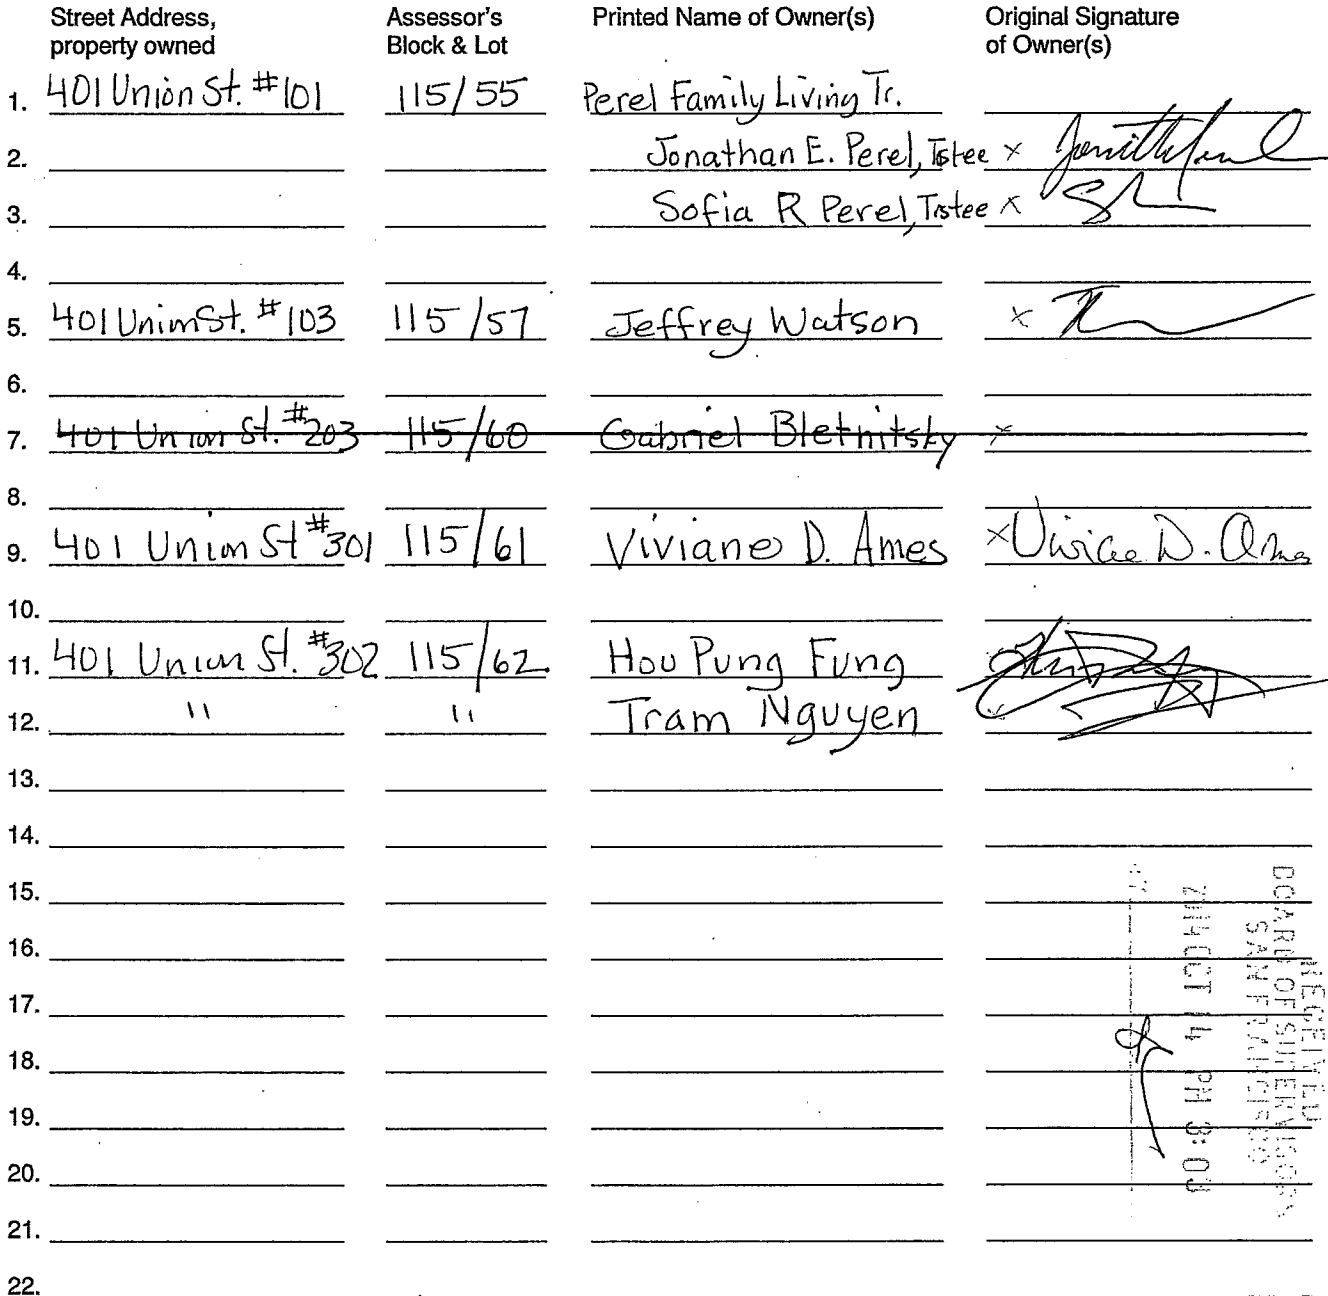 Street Address, property owned Assessor's Block & Lot Printed Name of Owner(s) Original Signature of Owner(s)
1. 401 Union St. #101 115/55 Perel Family Living Tr.
2. Jonathan E. Perel, Tstee x
3. Sofia R Perel, Trstee x
4.
5. 401 Union St. #103 115/57 Jeffrey Watson x
6.
7. 401 Union St. #203 115/60 Gabriel Bletnitsky x
8.
9. 401 Union St #301 115/61 Viviane D. Ames x
10.
11. 401 Union St. #302 115/62 Hou Pung Fung
12. " " Tram Nguyen x
13.
14.
15.
16.
17.
18.
19.
20.
21.
22.
RECEIVED
BOARD OF SUPERVISORS
SAN FRANCISCO
2014 OCT 14 PM 3:03